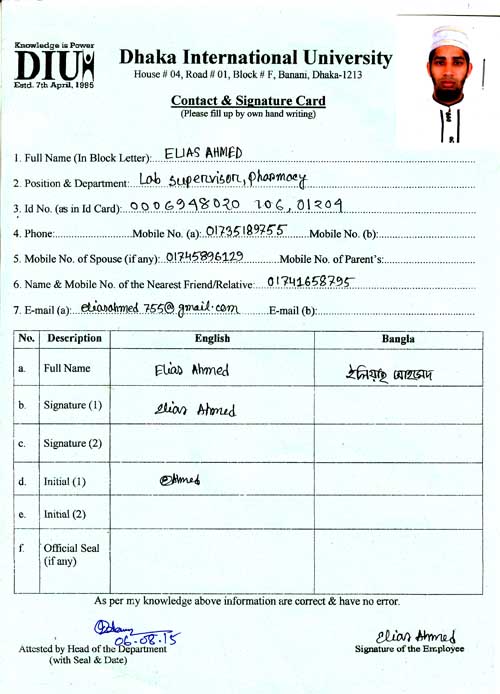 Knowledge is Power
DIU
Estd. 7th April, 1995
Dhaka International University
House # 04, Road # 01, Block # F, Banani, Dhaka-1213
Contact & Signature Card
(Please fill up by own hand writing)
1. Full Name (In Block Letter): ELIAS AHMED
2. Position & Department: Lab supervisor, pharmacy
3. Id No. (as in Id Card): 0006948020 106, 01204
4. Phone: Mobile No. (a): 01735189755 Mobile No. (b):
5. Mobile No. of Spouse (if any): 01745896129 Mobile No. of Parent's:
6. Name & Mobile No. of the Nearest Friend/Relative: 01741658795
7. E-mail (a): eliasahmed755@gmail.com E-mail (b):
No. Description English Bangla
a. Full Name Elias Ahmed ইলিয়াছ আহমেদ
b. Signature (1) elias Ahmed
c. Signature (2)
d. Initial (1) eAhmed
e. Initial (2)
f. Official Seal
(if any)
As per my knowledge above information are correct & have no error.
06-08.15
Attested by Head of the Department
(with Seal & Date)
elias Ahmed
Signature of the Employee